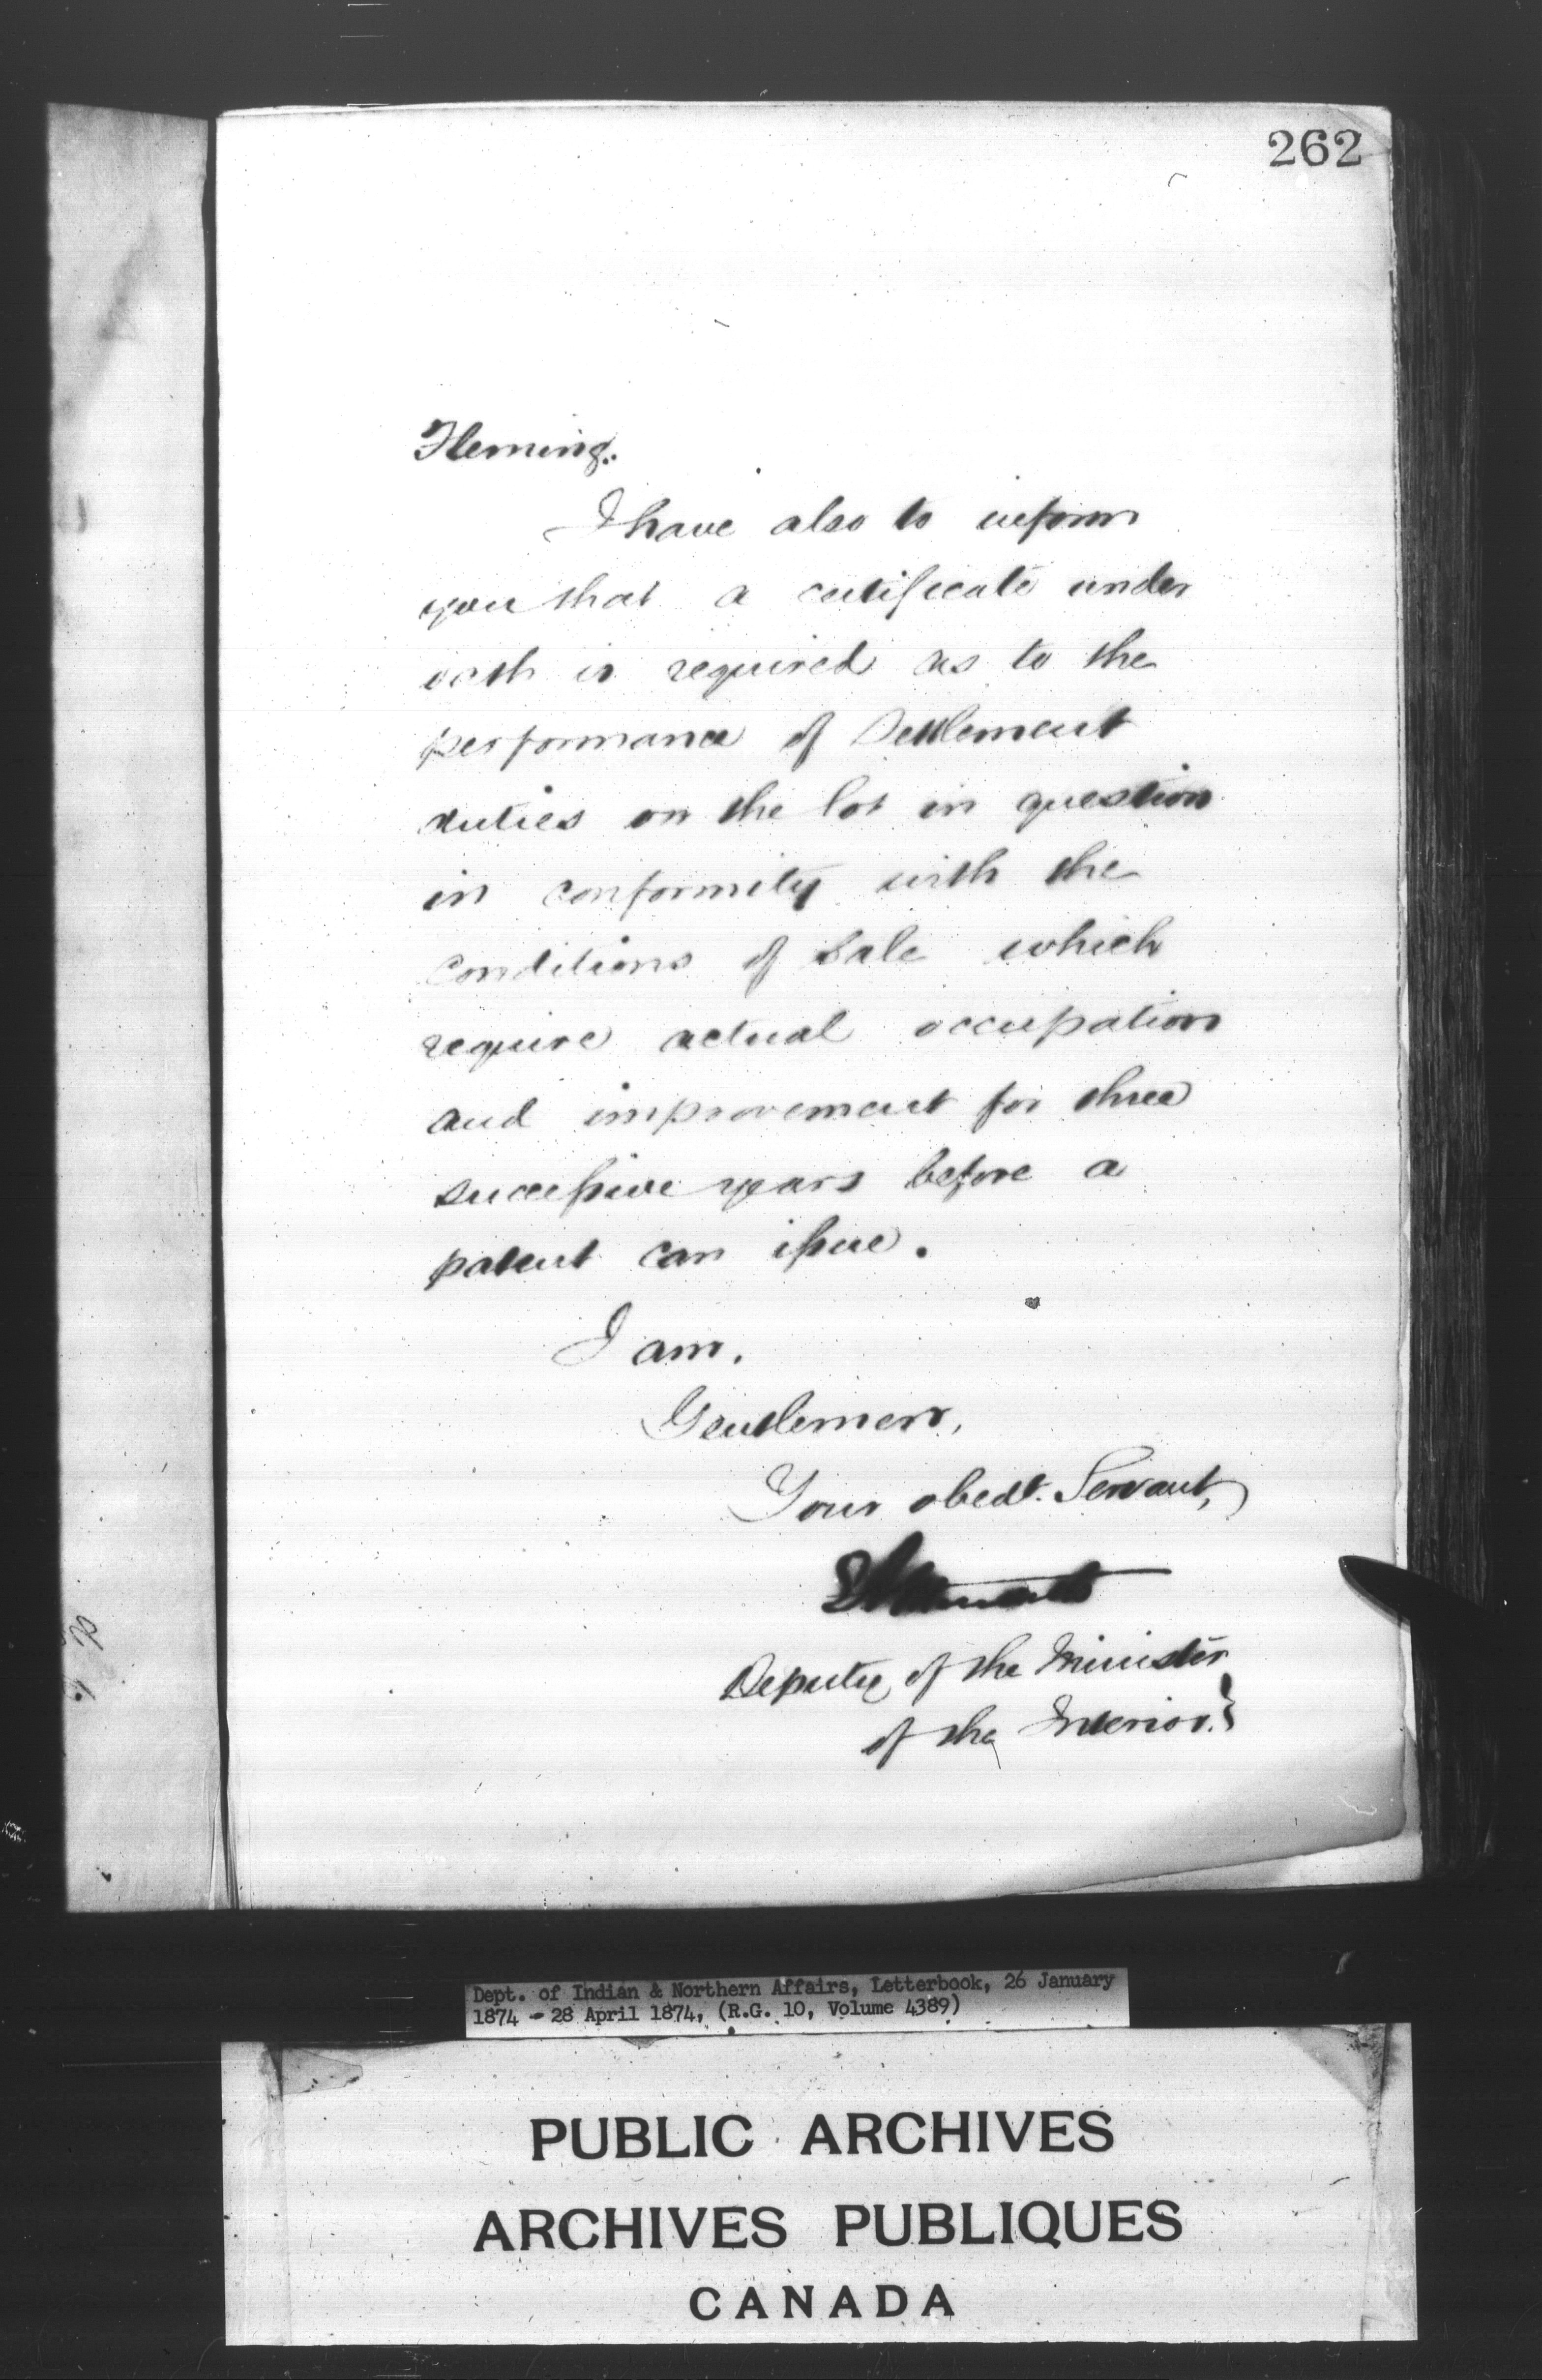 262
Fleming.
I have also to inform
you that a certificate under
oath is required as to the
performance of Settlement
duties on the lot in question
in conformity with the
conditions of Sale which
require actual occupation
and improvement for three
successive years before a
patent can issue.
I am,
Gentlemen,
Your obedt. Servant,
Deputy of the Minister
of the Interior.}
Dept. of Indian & Northern Affairs, Letterbook, 26 January
1874 - 28 April 1874, (R.G. 10, Volume 4389)
PUBLIC ARCHIVES
ARCHIVES PUBLIQUES
CANADA